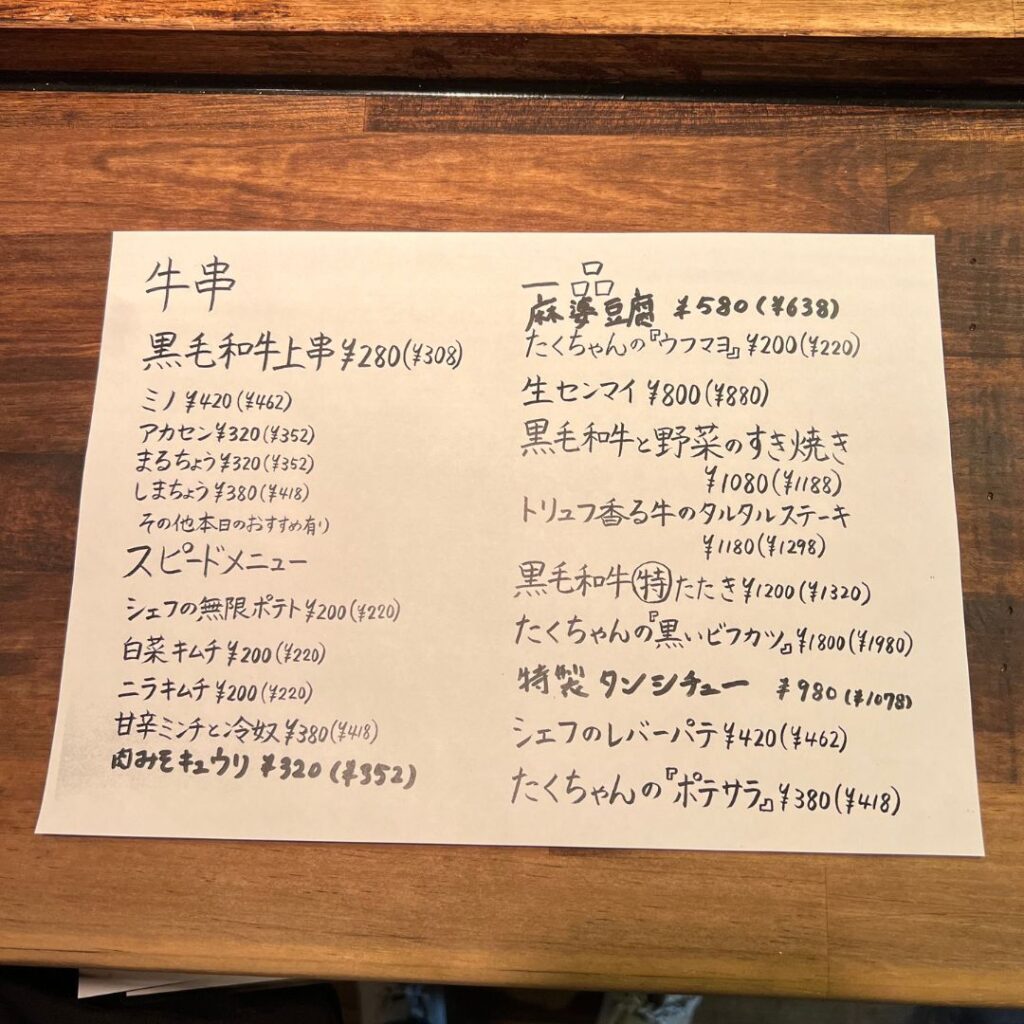 牛串
黒毛和牛上串¥280(¥308)
ミノ¥420(¥462)
アカセン¥320(¥352)
まるちょう¥320(¥352)
しまちょう¥380(¥418)
その他本日のおすすめ有り
スピードメニュー
シェフの無限ポテト¥200(¥220)
白菜キムチ¥200(¥220)
ニラキムチ¥200(¥220)
甘辛ミンチと冷奴¥380(¥418)
肉みそキュウリ ¥320(¥352)
一品
麻婆豆腐 ¥580(¥638)
たくちゃんの『ウフマヨ』¥200(¥220)
生センマイ¥800(¥880)
黒毛和牛と野菜のすき焼き
¥1080(¥1188)
トリュフ香る牛のタルタルステーキ
¥1180(¥1298)
黒毛和牛㊕たたき¥1200(¥1320)
たくちゃんの『黒いビフカツ』¥1800(¥1980)
特製 タンシチュー ¥980(¥1078)
シェフのレバーパテ¥420(¥462)
たくちゃんの『ポテサラ』¥380(¥418)